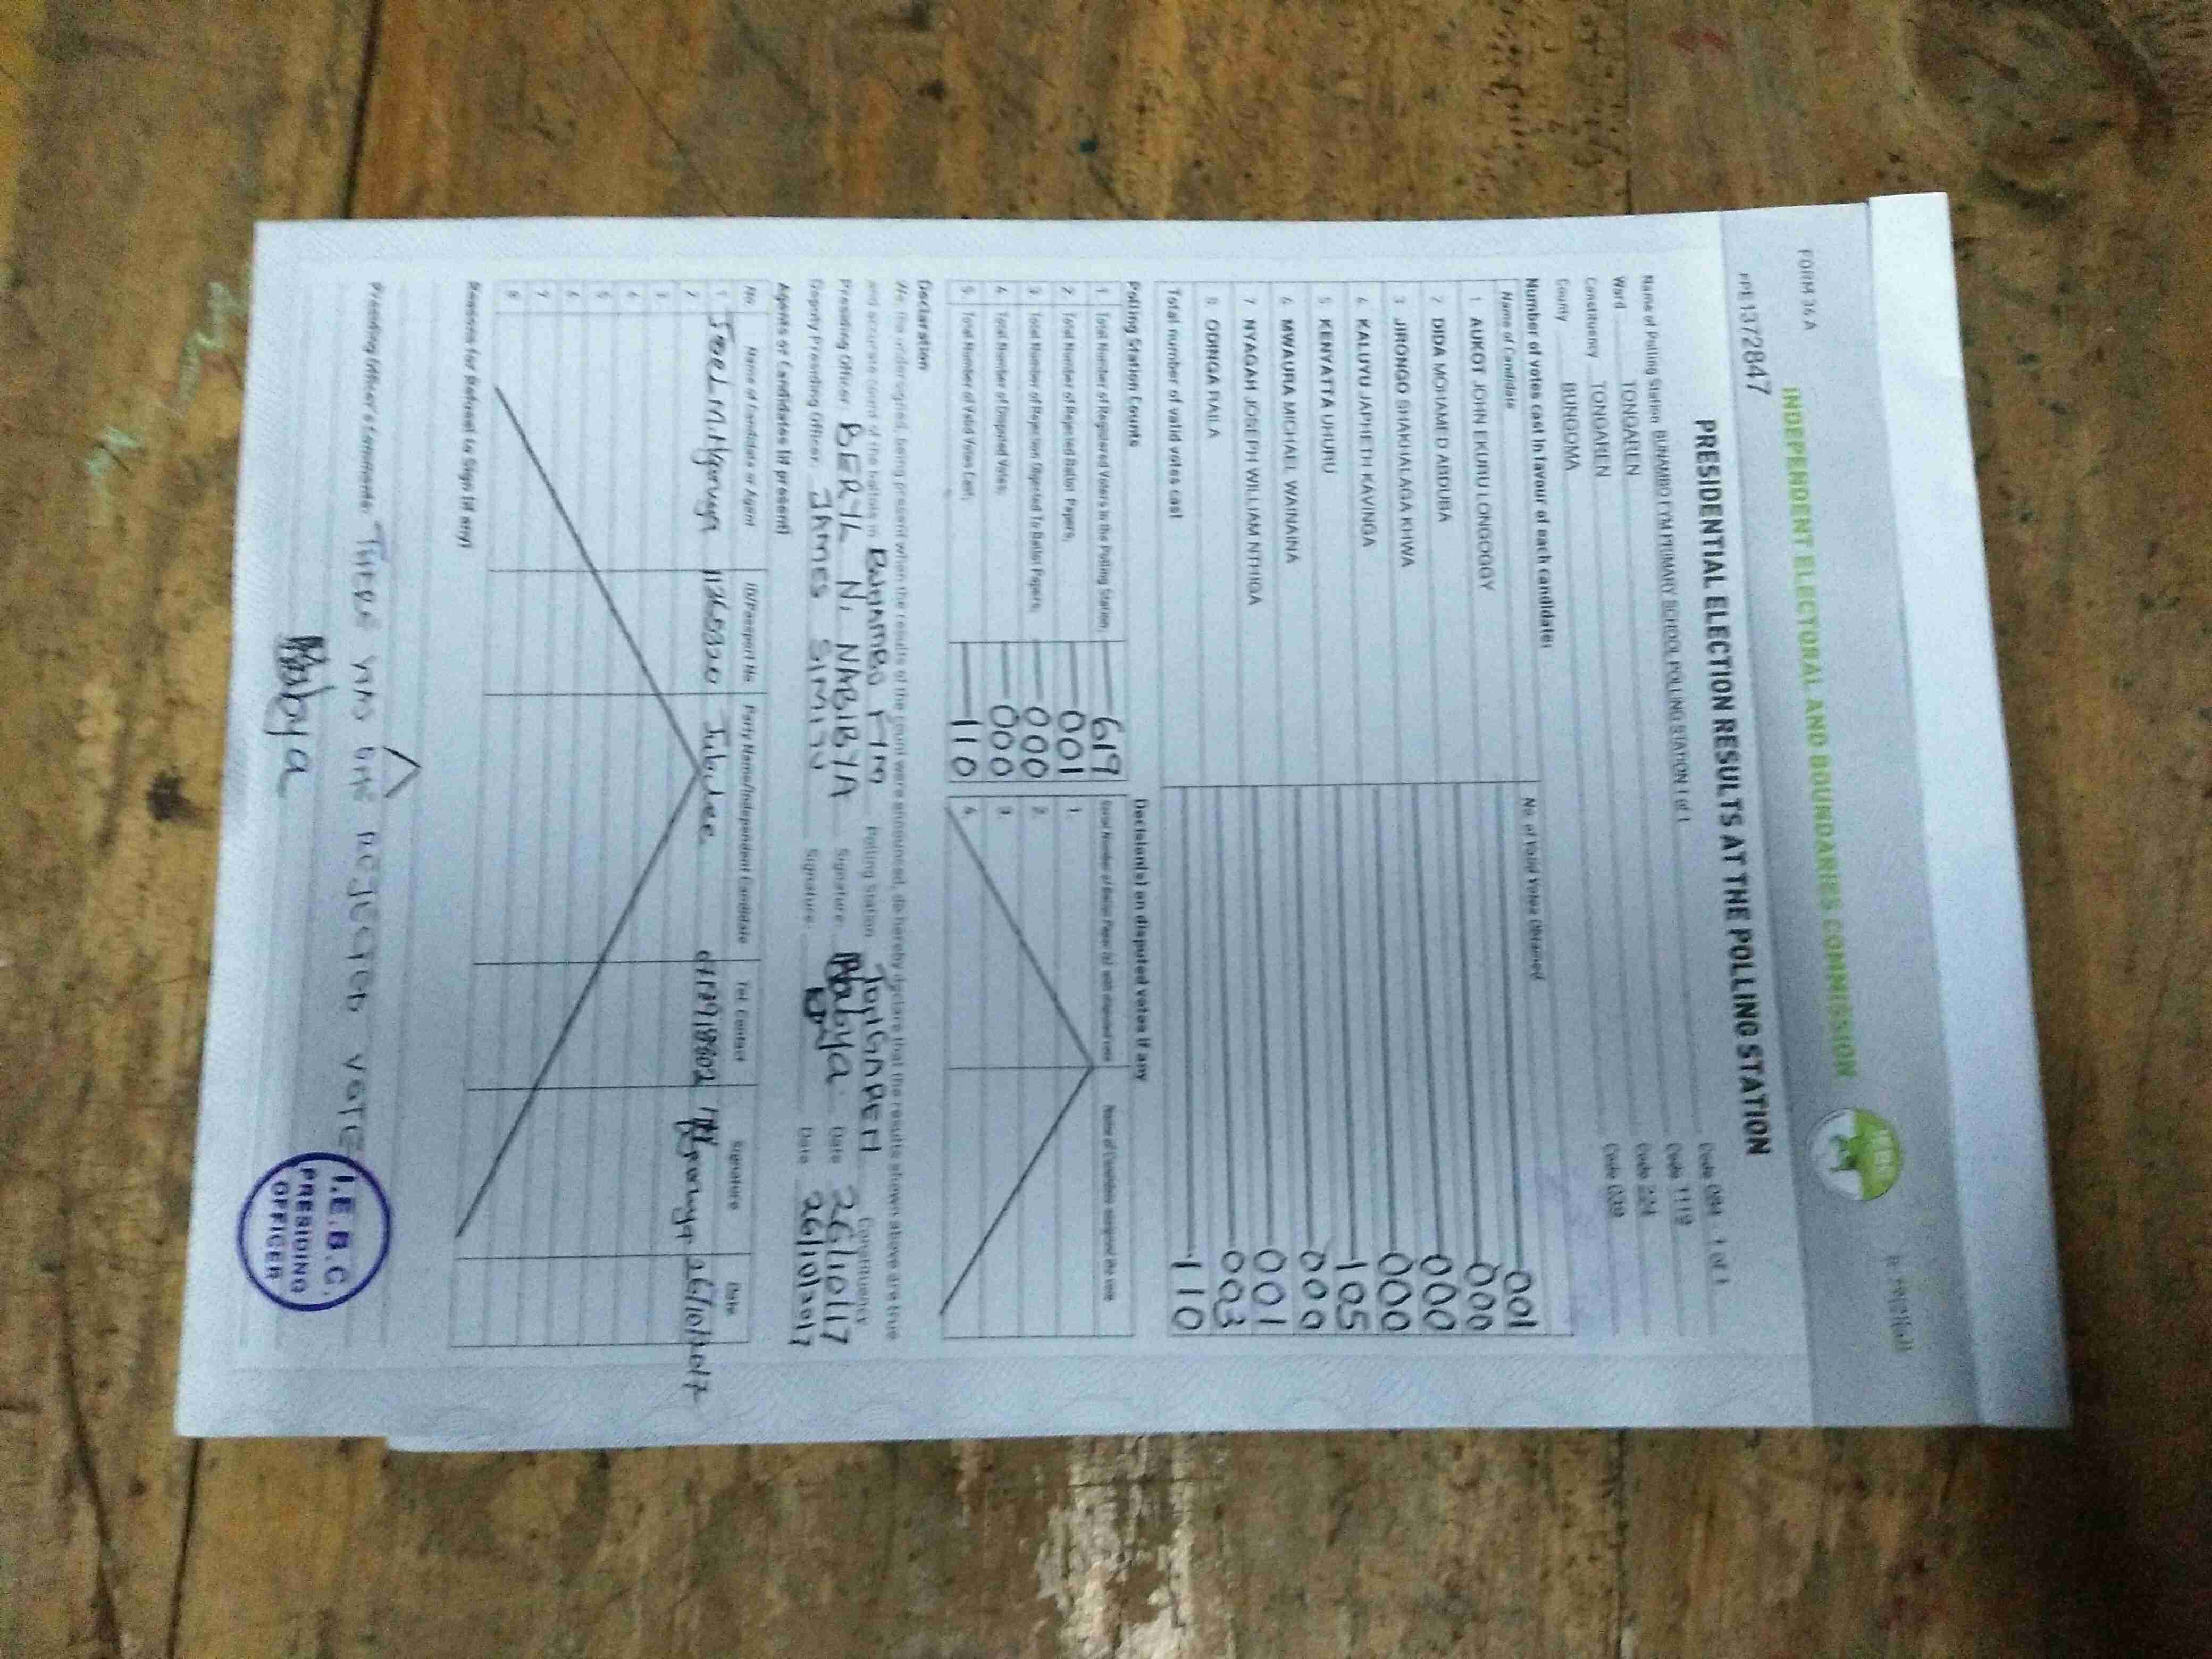 FORM 34A
INDEPENDENT ELECTORAL AND BOUNDARIES COMMISSION
1372847
PRESIDENTIAL ELECTION RESULTS AT THE POLLING STATION
Name of Polling Station BUNAMBO FYM PRIMARY SCHOOL POLLING STATION 1 of 1 Code 084 1 of 1
Ward TONGAREN Code 1119
Constituency TONGAREN Code 224
County BUNGOMA Code 039
Number of votes cast in favour of each candidate:
Name of Candidate No. of Valid Votes Obtained
1 AUKOT JOHN EKURU LONGOGGY 001
2 DIDA MOHAMED ABDUBA 000
3 JIRONGO SHAKHALAGA KHWA 000
4 KALUYU JAPHETH KAVINGA 000
5 KENYATTA UHURU 105
6 MWAURA MICHAEL WAINAINA 000
7 NYAGAH JOSEPH WILLIAM NTHIGA 001
8 ODINGA RAILA 003
Total number of valid votes cast 110
Polling Station Counts Decision(s) on disputed votes if any
1 Total Number of Registered Voters in the Polling Station; 619
2 Total Number of Rejected Ballot Papers; 001 1.
3 Total Number of Rejection Objected To Ballot Papers; 000 2
4 Total Number of Disputed Votes; 000 3
5 Total Number of Valid Votes Cast; 110 4
Declaration
We, the undersigned, being present when the results of the count were announced, do hereby declare that the results shown above are true
and accurate count of the ballots in BUNAMBO FYM Polling Station TONGAREN Constituency
Presiding Officer BERYL N. NABIBYA Signature Nabya Date 26/10/17
Deputy Presiding Officer JAMES SIMIYU Signature Date 26/10/2017
Agents or Candidates (if present)
No. Name of Candidate or Agent ID/Passport No Party Name/Independent Candidate Tel. Contact Signature Date
1 JOEL M. 11265320 Jubilee 26/10/2017
2
3
4
5
6
7
8
Reasons for Refusal to Sign (if any)
Presiding Officer's Comments: THERE WAS ONE REJECTED VOTE
Nabya
I.E.B.C.
PRESIDING
OFFICER